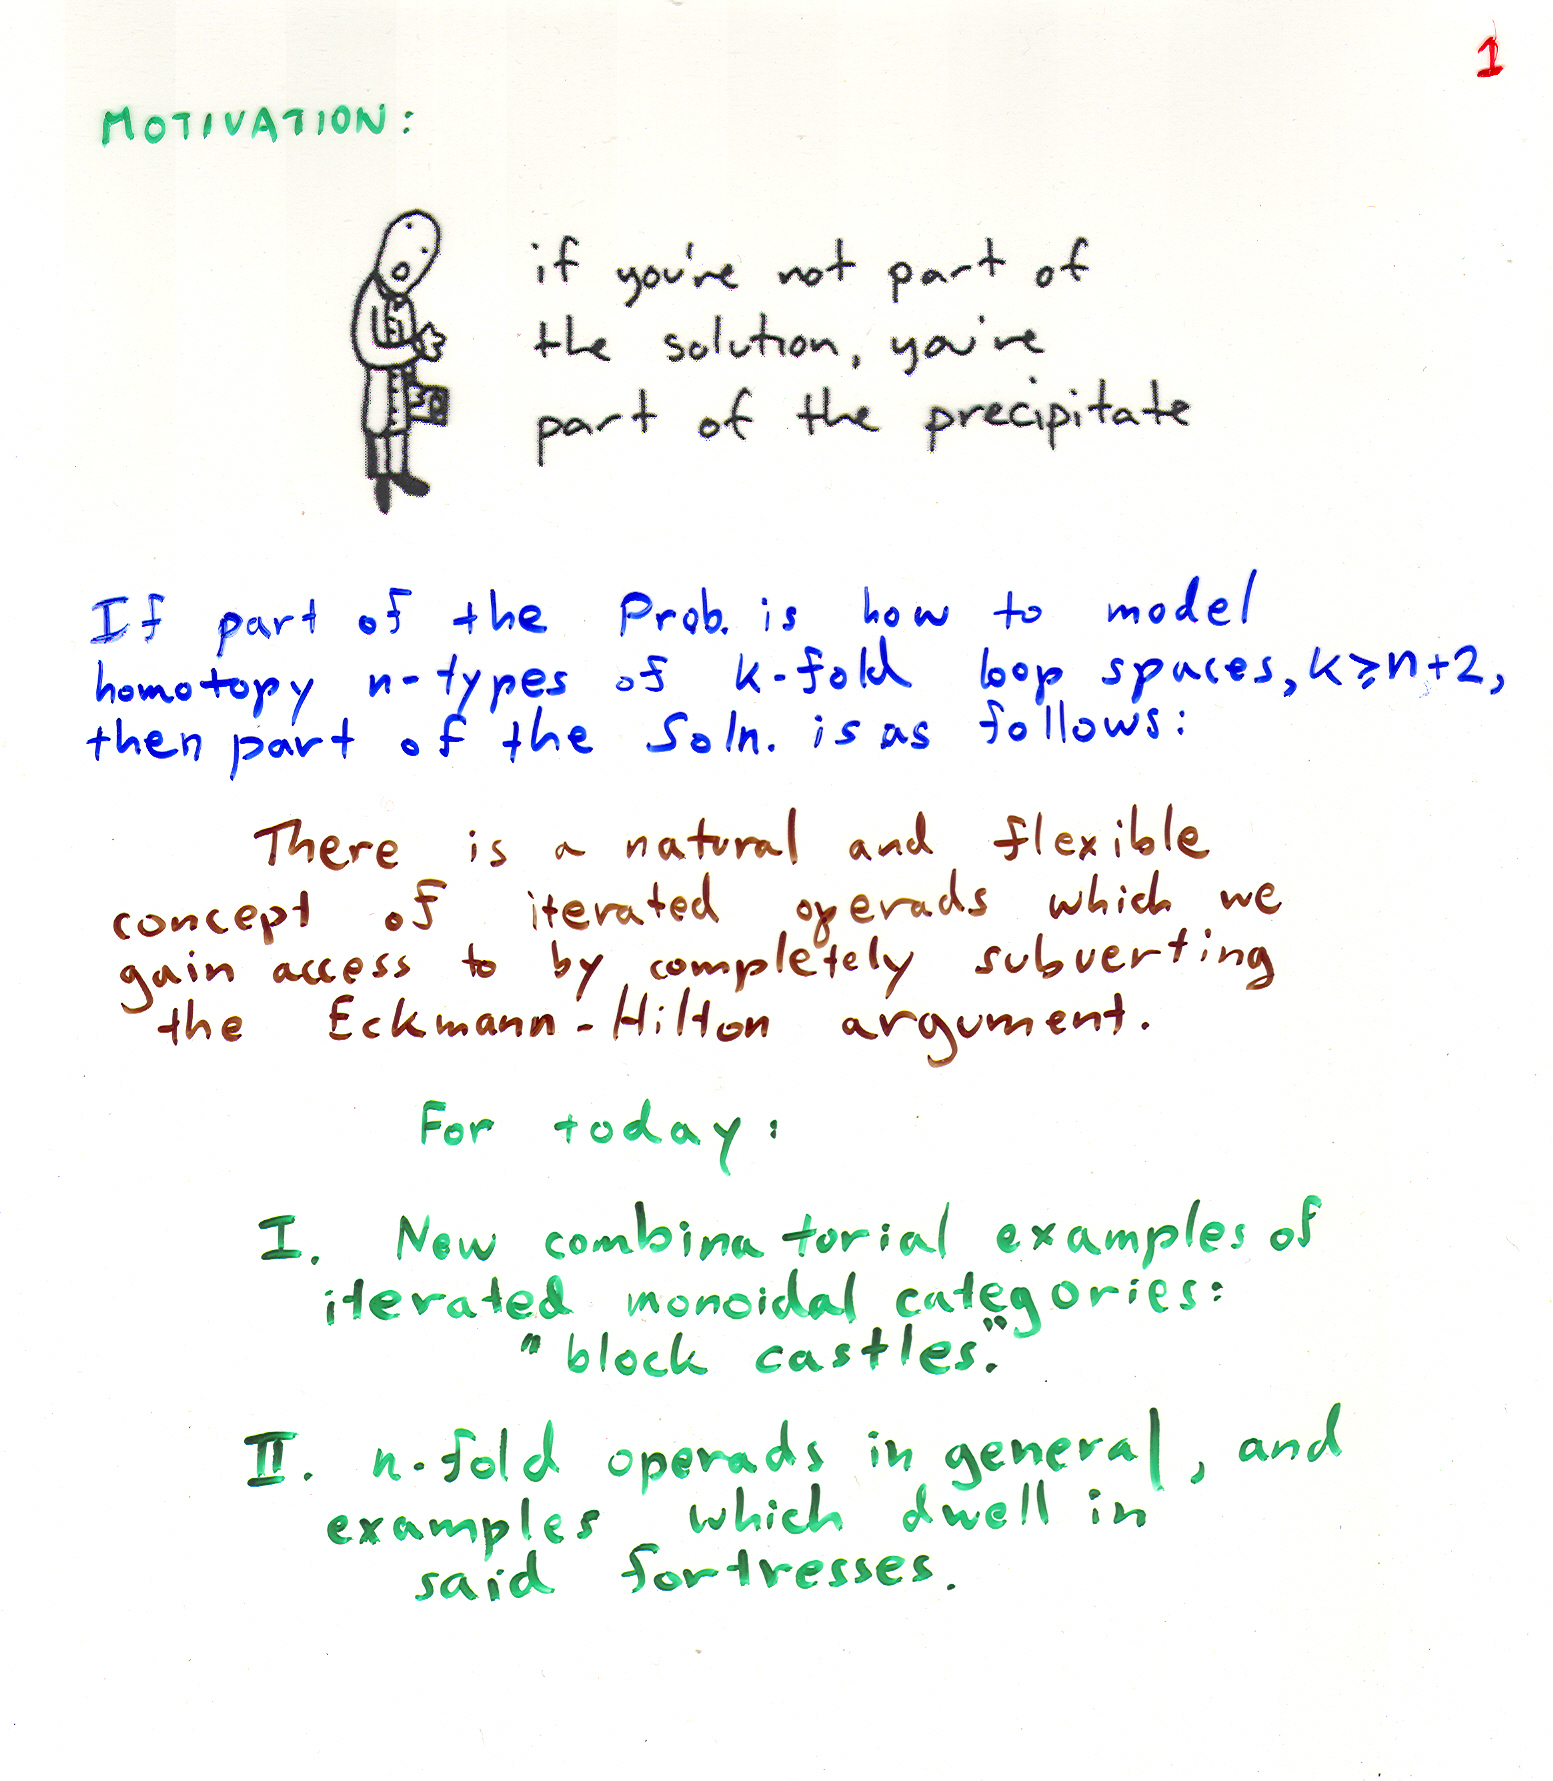 1
MOTIVATION:
if you're not part of
the solution, you're
part of the precipitate
If part of the Prob. is how to model
homotopy n-types of k-fold loop spaces, k≥n+2,
then part of the Soln. is as follows:
There is a natural and flexible
concept of iterated operads which we
gain access to by completely subverting
the Eckmann-Hilton argument.
For today:
I. New combinatorial examples of
iterated monoidal categories:
"block castles."
II. n-fold operads in general, and
examples which dwell in
said fortresses.